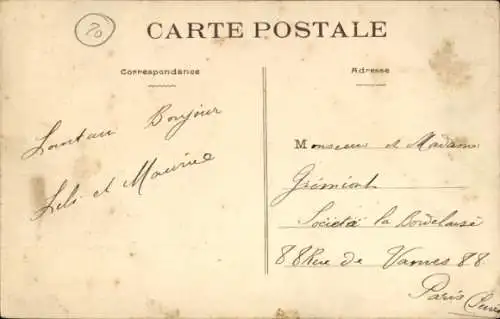 70
CARTE POSTALE
Correspondance
Adresse
Bonjour
et Maurice
Monsieur et Madame
Société la Bordelaise
88 Rue de Vanves 88
Paris